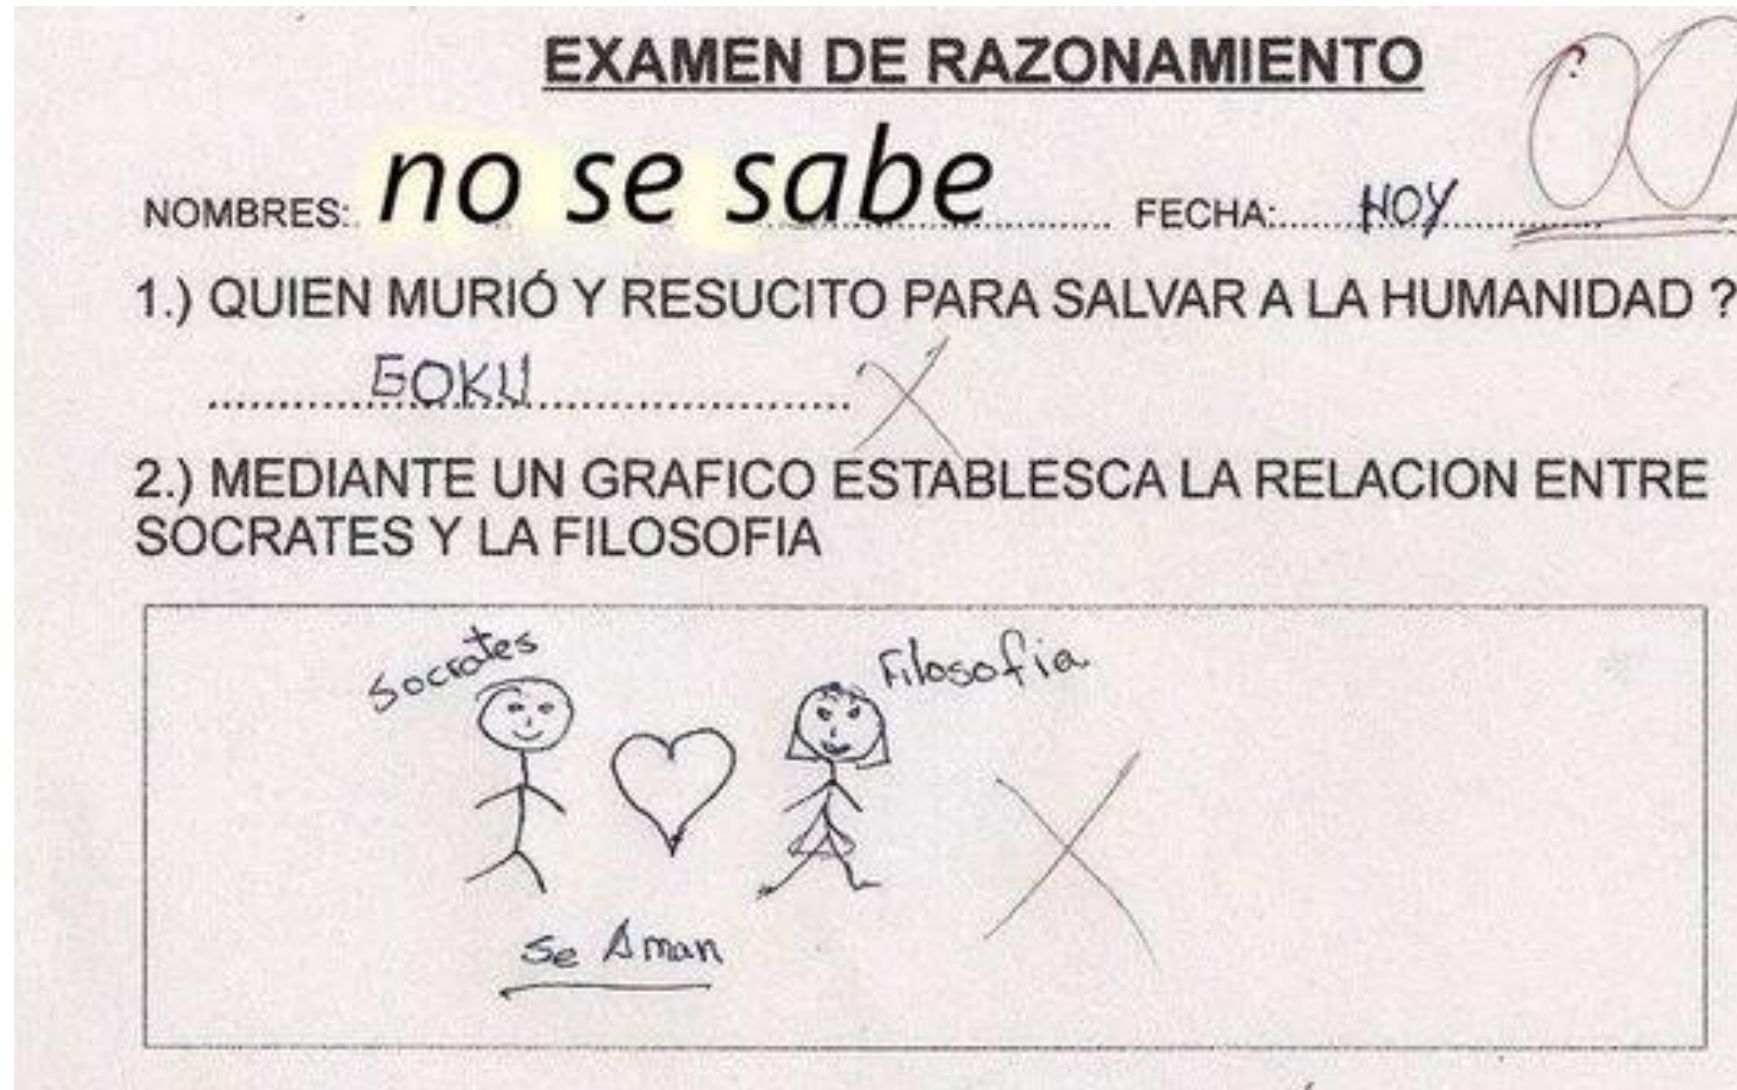 EXAMEN DE RAZONAMIENTO
00
NOMBRES: no se sabe FECHA: HOY
1.) QUIEN MURIÓ Y RESUCITO PARA SALVAR A LA HUMANIDAD ?
GOKU
2.) MEDIANTE UN GRAFICO ESTABLESCA LA RELACION ENTRE
SOCRATES Y LA FILOSOFIA
Socrates Filosofia
Se Aman